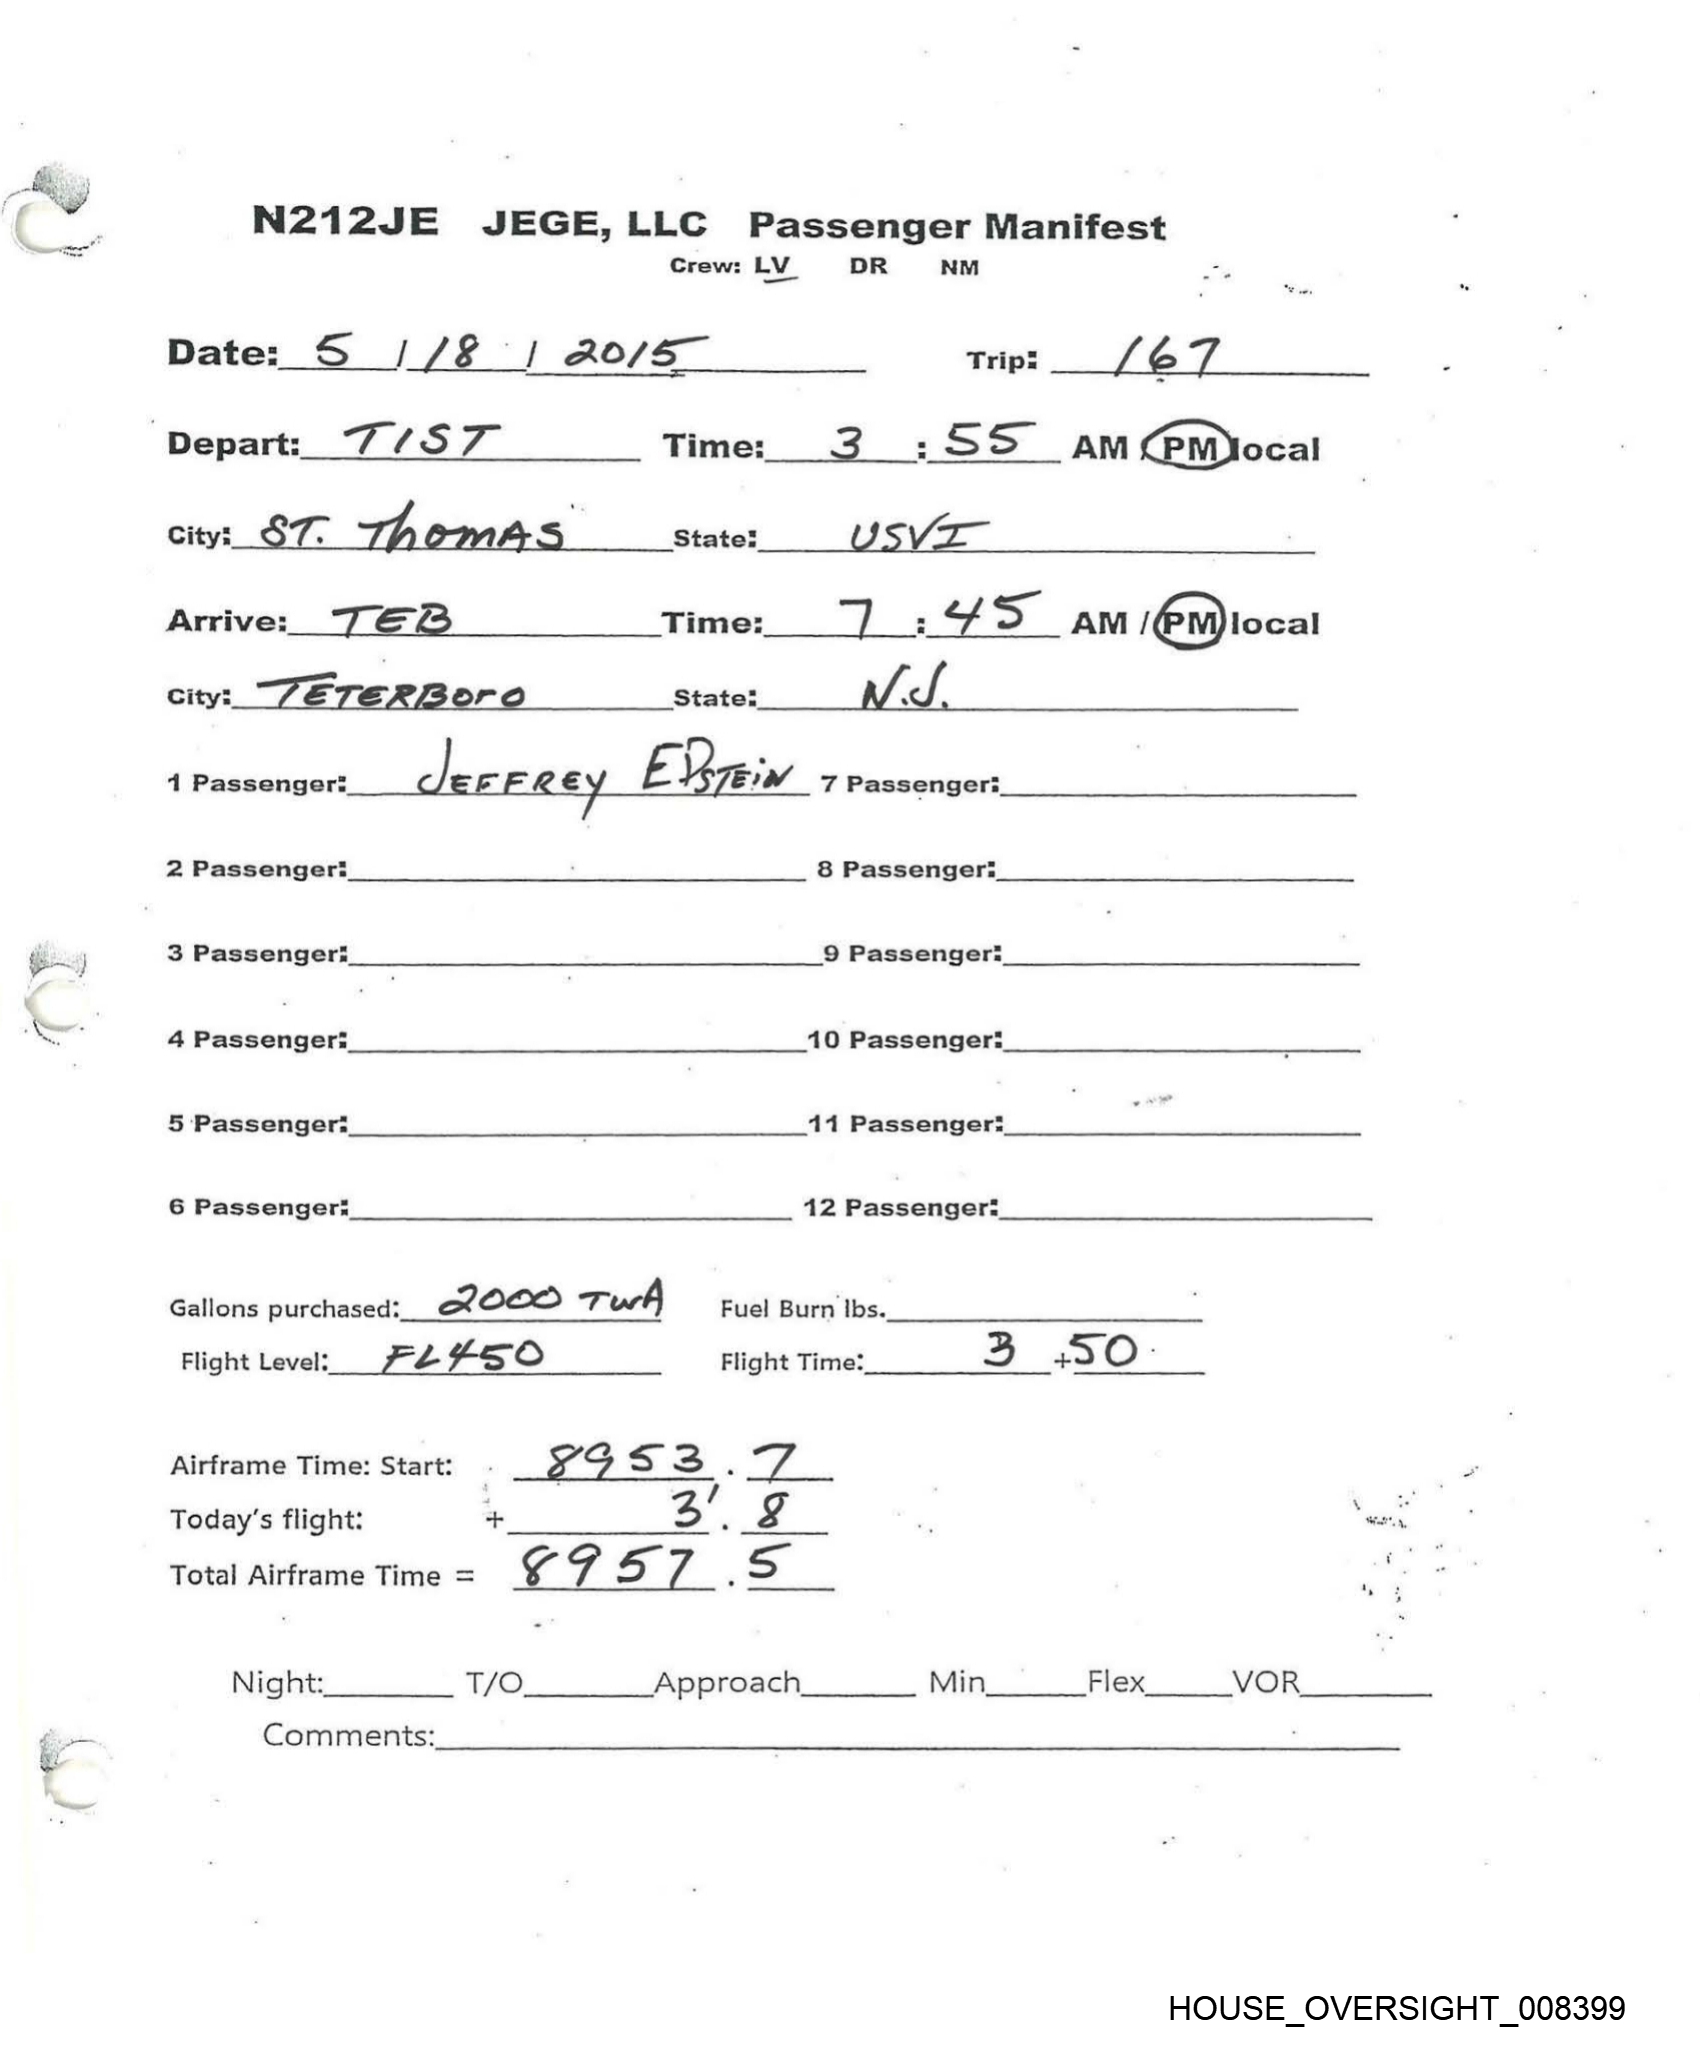 N212JE JEGE, LLC Passenger Manifest
Crew: LV DR NM
Date: 5 / 18 / 2015 Trip: 167
Depart: TIST Time: 3 : 55 AM / PM local
City: ST. THOMAS State: USVI
Arrive: TEB Time: 7 : 45 AM / PM local
City: TETERBORO State: N.J.
1 Passenger: JEFFREY EPSTEIN 7 Passenger:
2 Passenger: 8 Passenger:
3 Passenger: 9 Passenger:
4 Passenger: 10 Passenger:
5 Passenger: 11 Passenger:
6 Passenger: 12 Passenger:
Gallons purchased: 2000 TWA Fuel Burn lbs.
Flight Level: FL450 Flight Time: 3 + 50
Airframe Time: Start: 8953 . 7
Today's flight: + 3 . 8
Total Airframe Time = 8957 . 5
Night: T/O Approach Min Flex VOR
Comments:
HOUSE_OVERSIGHT_008399